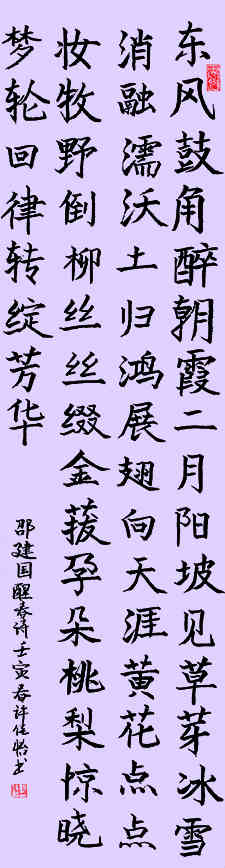 东风鼓角醉朝霞二月阳坡见草芽冰雪
消融濡沃土归鸿展翅向天涯黄花点点
妆牧野倒柳丝丝缀金菝孕朵桃梨惊晓
梦轮回律转绽芳华
邵建国醒春诗壬寅春许佳怡书